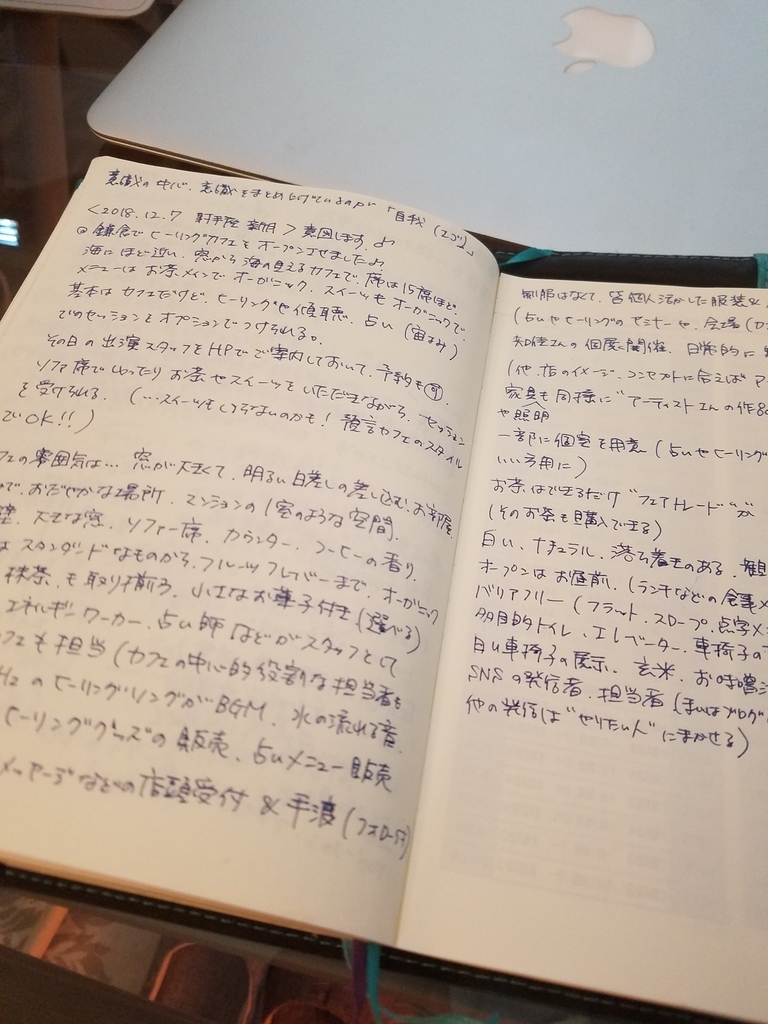 意識の中心、意識をまとめ上げているのが「自我(エゴ)」
<2018.12.7 射手座 新月> 意図します♪
鎌倉でヒーリングカフェをオープンさせました♪
海にほど近い、窓から海の見えるカフェで、席は15席ほど。
メニューはお茶メインでオーガニック、スイーツもオーガニックで、
基本はカフェだけど、ヒーリングや傾聴、占い(宙よみ)
でのセッションをオプションでつけられる。
その日の出演スタッフをHPでご案内しておいて、予約も可
ソファ席でゆったりお茶やスイーツをいただきながら、セッション
を受けられる。(…スイーツもしらないのかも! 預言カフェのスタイル
でOK!!)
フェの雰囲気は… 窓が大きくて、明るい日差しの差し込むお部屋
で、おだやかな場所、マンションの1室のような空間、
壁、大きな窓、ソファー席、カウンター、コーヒーの香り、
はスタンダードなものから、フルーツフレーバーまで、オーガニック
抹茶も取り揃う、小さなお菓子付き(選べる)
エネルギーワーカー、占い師などがスタッフとして
フェも担当(カフェの中心的役割な担当者も
Hzのヒーリングソングが BGM、水の流れる音、
ヒーリンググッズの販売、占いメニュー販売
メッセージなどの店頭受付 & 手渡(フォロー
制服はなくて、皆個人活かした服装&
(占いやヒーリングのセミナーや、会場(
知佳さんの個展も開催、日常的に
(他、店のイメージ、コンセプトに合えば ア
家具も同様に "アーティストさんの作品
や照明
一部に個室を用意(占いやヒーリング
いい方用に)
お茶はできるだけ "フェアトレード" が
(そのお茶も購入できる)
白い、ナチュラル、落ち着きのある、観
オープンはお昼前、(ランチなどの食事メ
バリアフリー(フラット、スロープ、点字メ
多目的トイレ、エレベーター、車椅子の
白い車椅子の展示、玄米、お味噌汁
SNSの発信者、担当者(まいはブログ
他の発信は "やりたい人" にまかせる)